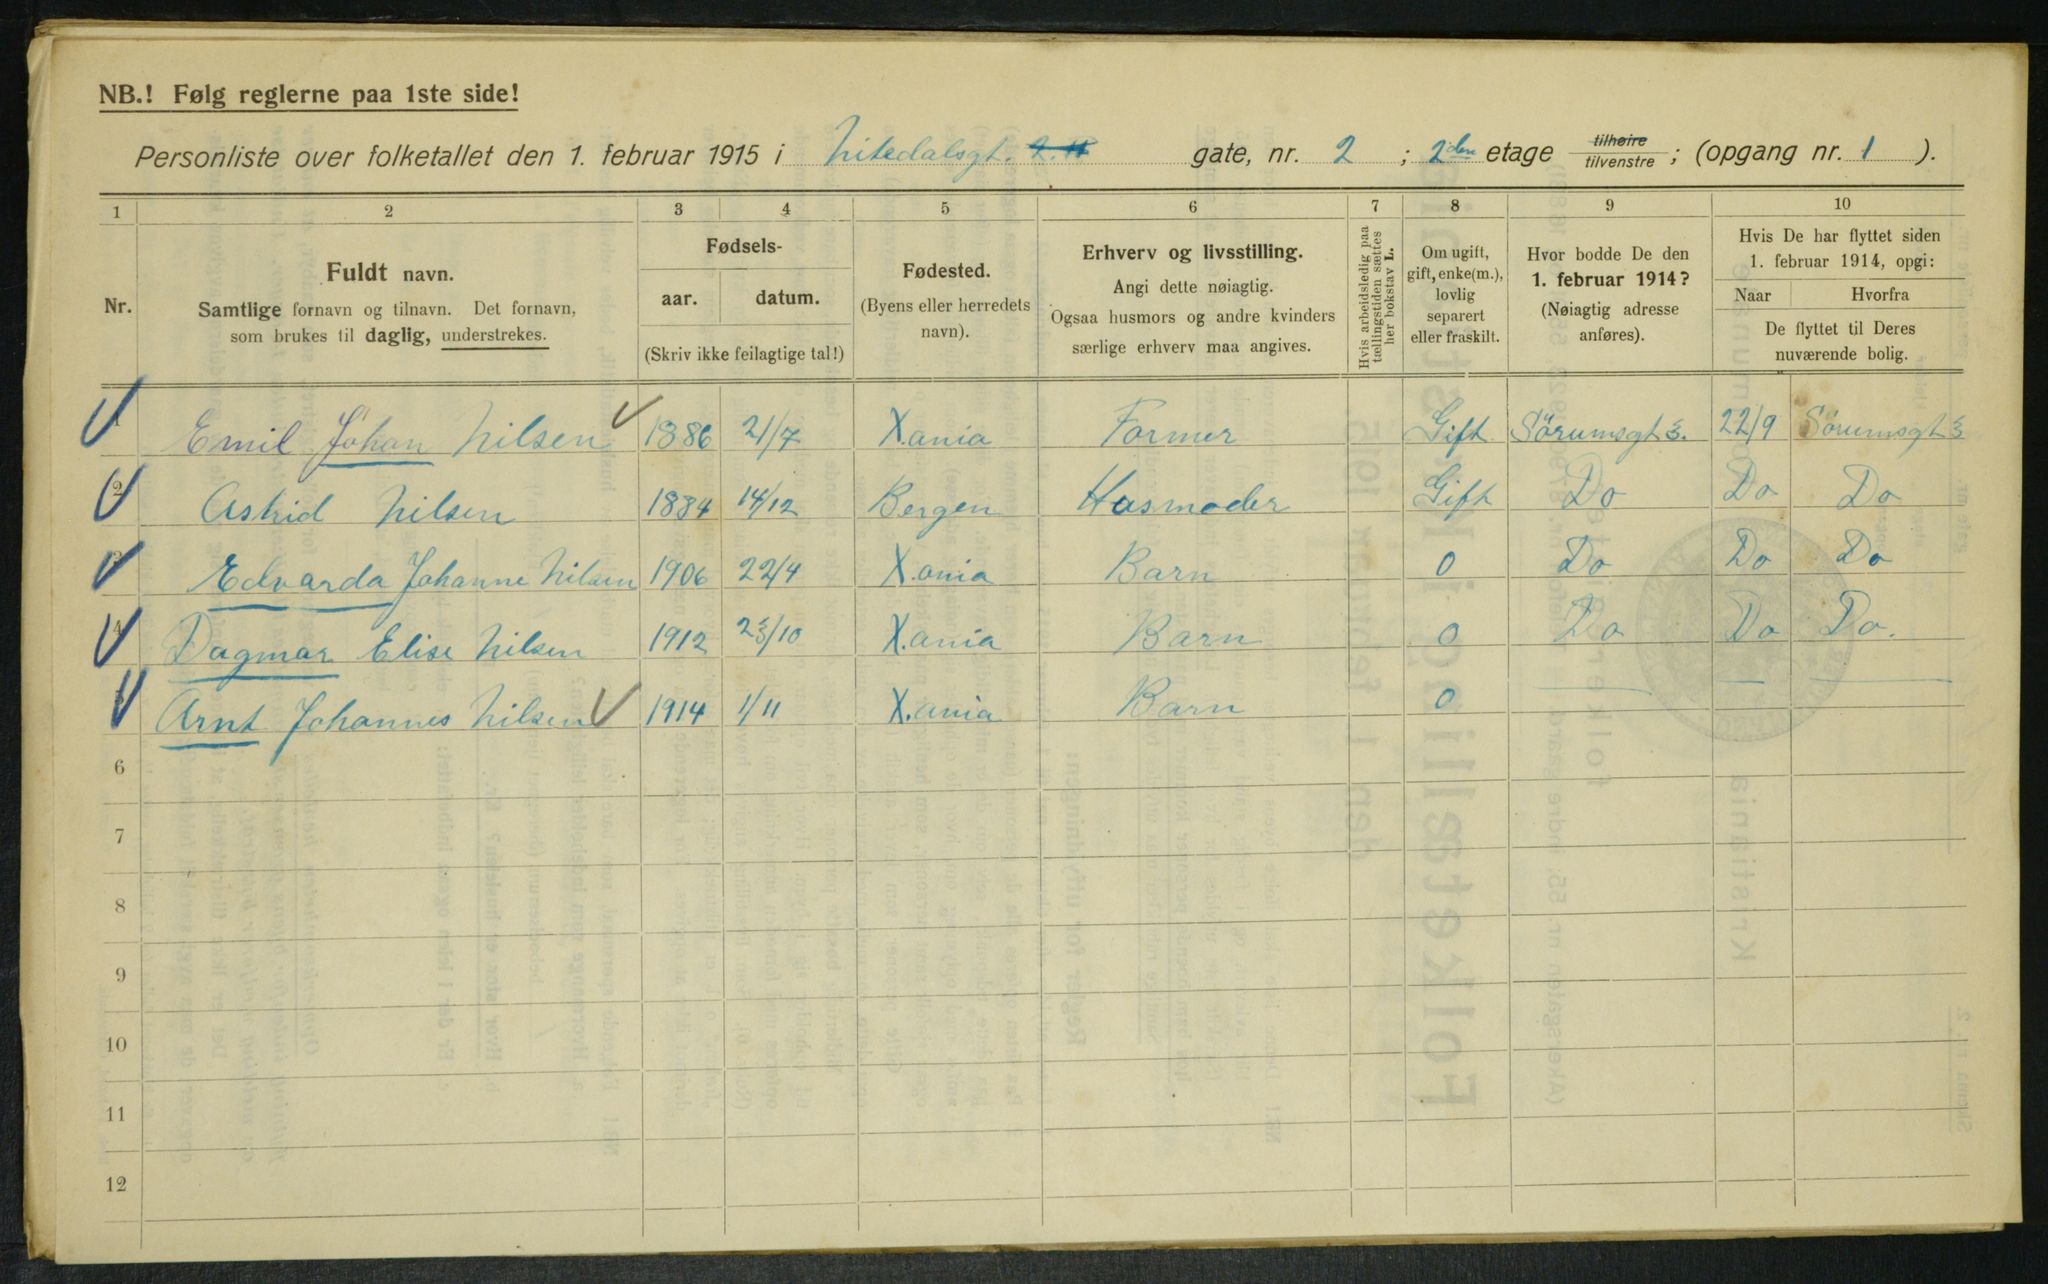 NB.! Følg reglerne paa 1ste side!
Personliste over folketallet den 1. februar 1915 i Nitedalsgt. gate, nr. 2 ; 2den etage tilhøire tilvenstre ; (opgang nr. 1 ).
1 2 3 4 5 6 7 8 9 10
Nr.
Fuldt navn.
Samtlige fornavn og tilnavn. Det fornavn,
som brukes til daglig, understrekes.
Fødsels-
aar. datum.
(Skriv ikke feilagtige tal!)
Fødested.
(Byens eller herredets
navn).
Erhverv og livsstilling.
Angi dette nøiagtig.
Ogsaa husmors og andre kvinders
særlige erhverv maa angives.
Hvis arbeidsledig paa
tællingstiden sættes
her bokstav L.
Om ugift,
gift, enke(m.),
lovlig
separert
eller fraskilt.
Hvor bodde De den
1. februar 1914?
(Nøiagtig adresse
anføres).
Hvis De har flyttet siden
1. februar 1914, opgi:
Naar Hvorfra
De flyttet til Deres
nuværende bolig.
1 Emil Johan Nilsen 1886 21/7 X.ania Former Gift Sörumsgt 3. 22/9 Sörumsgt 3
2 Astrid Nilsen 1884 14/12 Bergen Husmoder Gift Do Do Do
3 Edvarda Johanne Nilsen 1906 22/4 X.ania Barn 0 Do Do Do
4 Dagmar Elise Nilsen 1912 23/10 X.ania Barn 0 Do Do Do.
5 Arnt Johannes Nilsen 1914 1/11 X.ania Barn 0 — — —
6
7
8
9
10
11
12